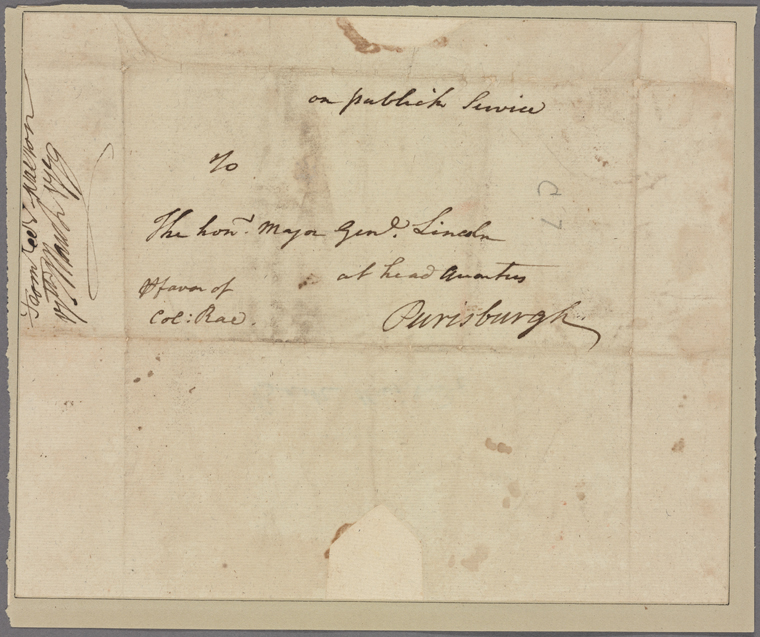 on publick Service
To
The honl. Major Genl. Lincoln
at head Quarters
Purisburgh
⅌ favor of
Col: Rae.
C 7
From
March 1779